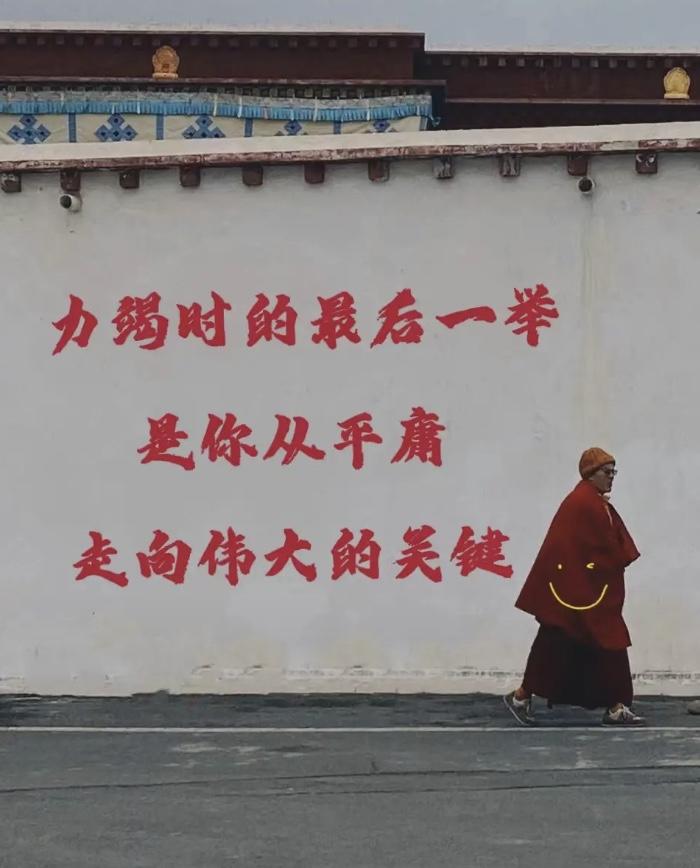 力竭时的最后一举
是你从平庸
走向伟大的关键